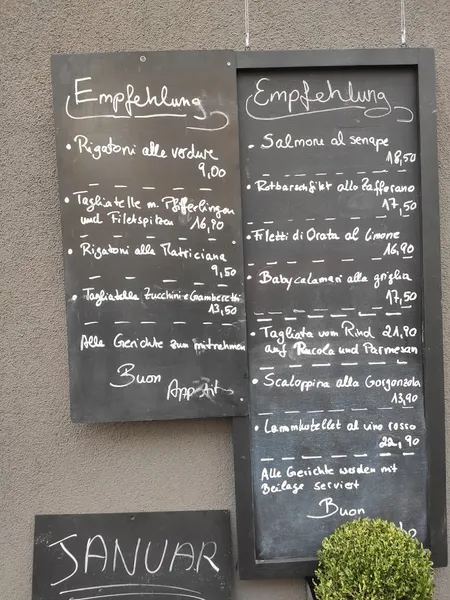 Empfehlung
• Rigatoni alle verdure
9,00
• Tagliatelle m. Pfifferlingen
und Filetspitzen
16,90
• Rigatoni alla Matriciana
9,50
• Tagliatelle Zucchini e Gamberetti
13,50
Alle Gerichte zum mitnehmen
Buon
Appetit
Empfehlung
• Salmone al senape
18,50
• Rotbarschfilet allo Zafferano
17,50
• Filetti di Orata al limone
16,90
• Babycalamari alla griglia
17,50
• Tagliata vom Rind 21,90
auf Rucola und Parmesan
• Scaloppina alla Gorgonzola
13,90
• Lammkotellet al vino rosso
22,90
Alle Gerichte werden mit
Beilage serviert
Buon
JANUAR